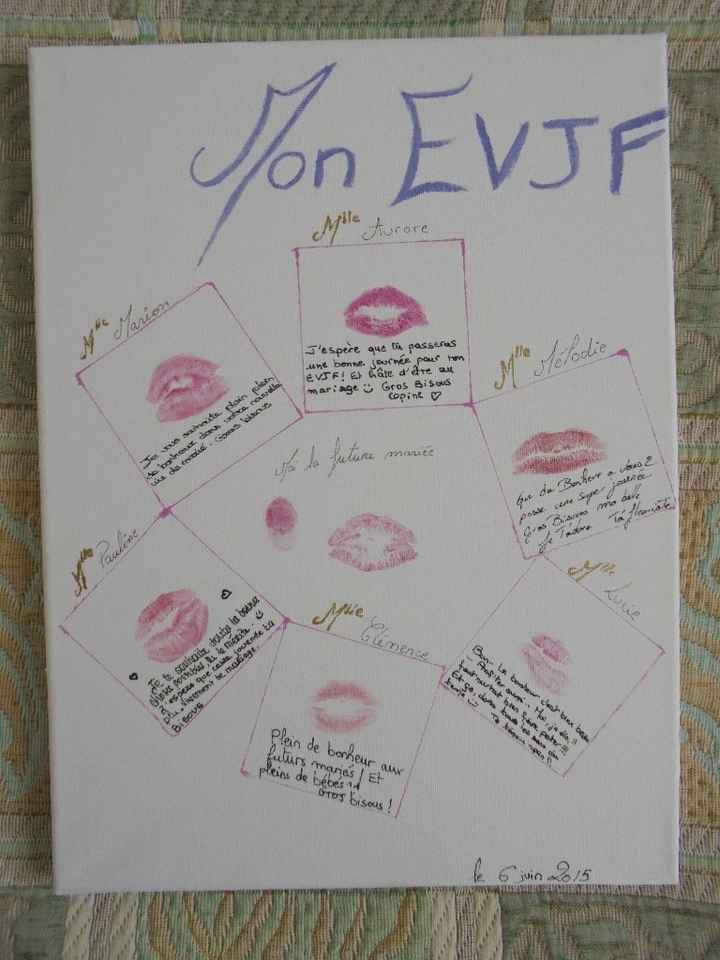 Mon EVJF
Mlle Aurore
J'espère que tu passeras
une bonne journée pour ton
EVJF! Et hâte d'être au
mariage Gros Bisous
copine
Mlle Marion
Je vous souhaite plein plein
de bonheur dans votre nouvelle
vie de marié. Gross bisous
Mlle Mélodie
Que du Bonheur a vous 2
passe une super journée
Gros Bisous ma belle
Je t'adore
la future mariée
Mlle Pauline
Je te souhaite toutes la bonne
chose possible tu le mérite.
J'espère que cette journée ta
plu. Vivement le mariage.
Bisous
Mlle Clémence
Plein de bonheur aux
futurs mariés! Et
pleins de bébés
Gros bisous!
Mlle Lucie
Bon. Le bonheur c'est bien beau
faut surtout bien faire péter!!!
le 6 juin 2015